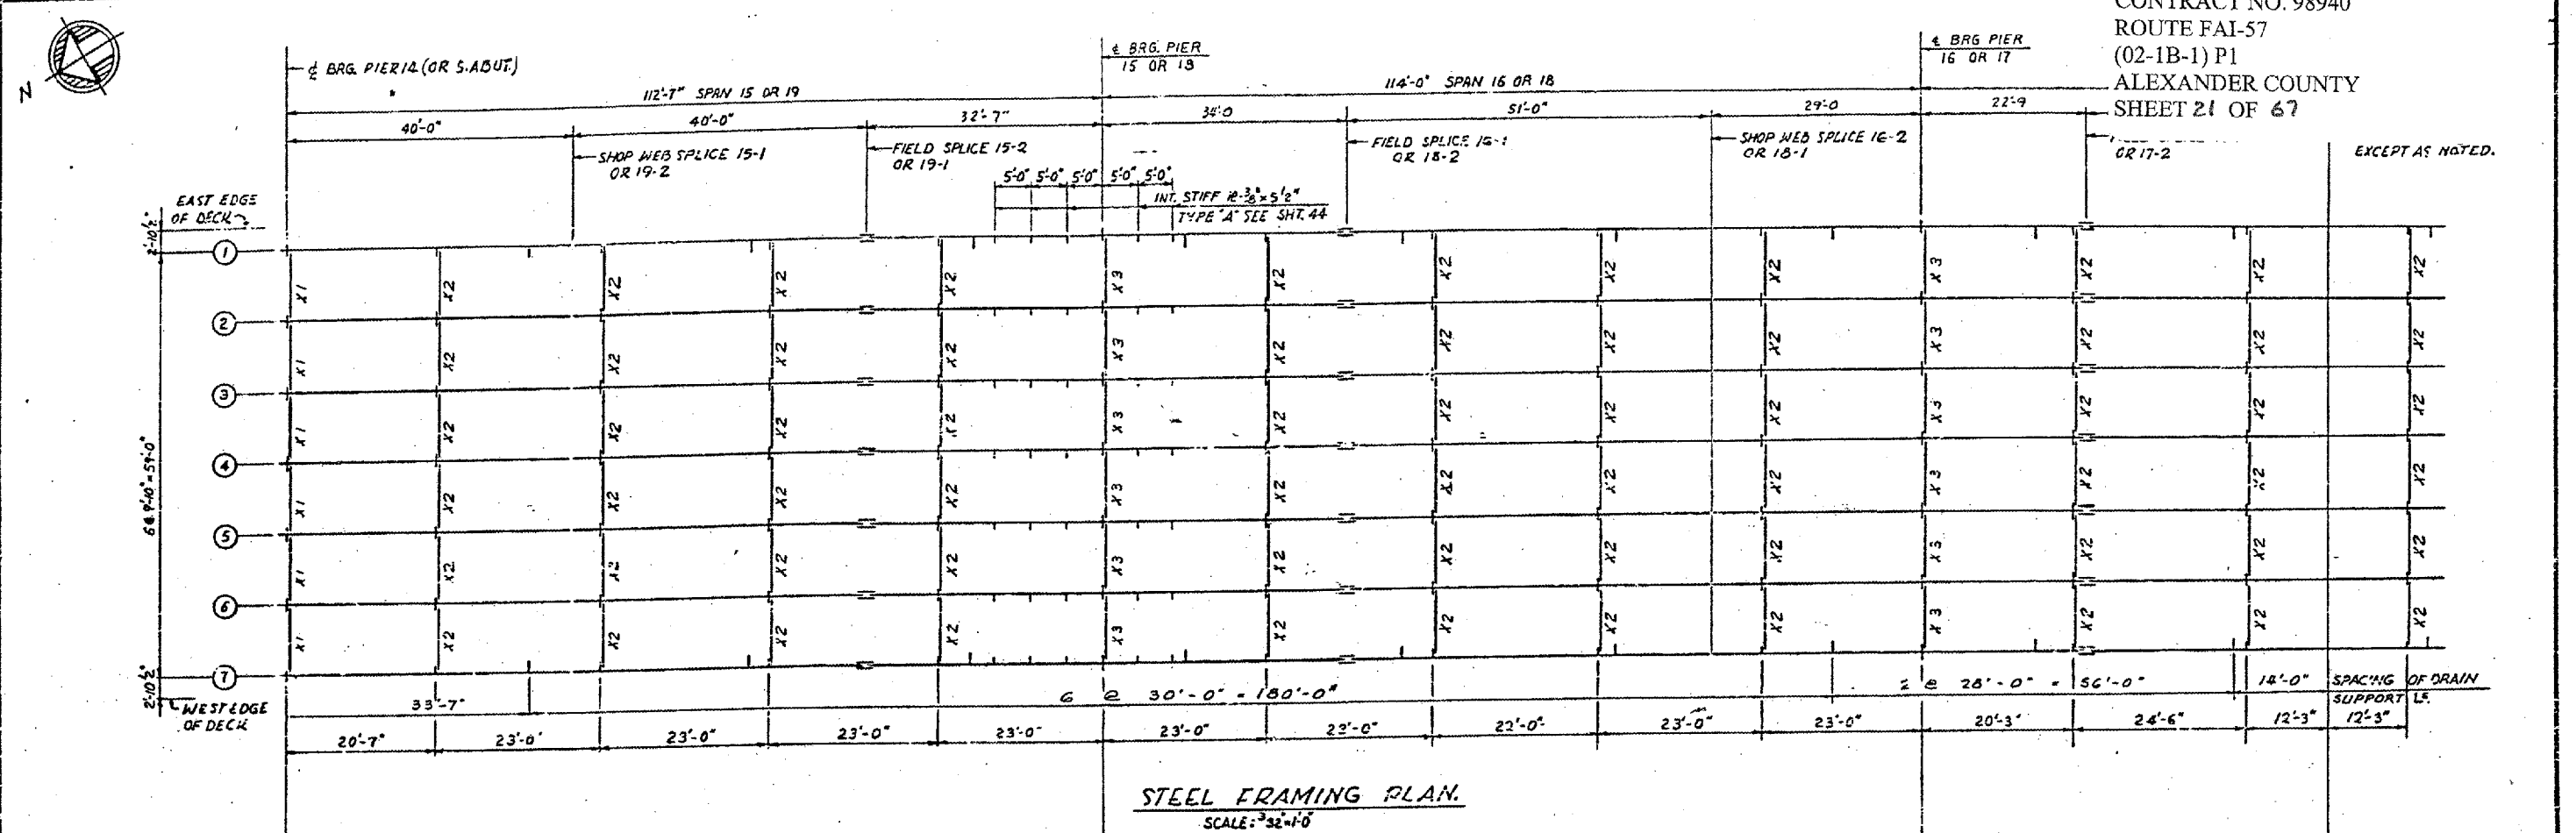 CONTRACT NO. 98940
ROUTE FAI-57
(02-1B-1) P1
ALEXANDER COUNTY
SHEET 21 OF 67
N
℄ BRG. PIER 14 (OR S. ABUT.)
℄ BRG. PIER
15 OR 18
℄ BRG PIER
16 OR 17
112'-7" SPAN 15 OR 19
114'-0" SPAN 16 OR 18
40'-0"
40'-0"
32'-7"
34'-0
51'-0"
29'-0
22'-9
SHOP WEB SPLICE 15-1
OR 19-2
FIELD SPLICE 15-2
OR 19-1
FIELD SPLICE 16-1
OR 18-2
SHOP WEB SPLICE 16-2
OR 18-1
OR 17-2
EXCEPT AS NOTED.
5'-0" 5'-0" 5'-0" 5'-0" 5'-0"
INT. STIFF ℄-3/8"x5 1/2"
TYPE "A" SEE SHT. 44
EAST EDGE
OF DECK
2'-10½"
1
X1 X2 X2 X2 X2 X3 X2 X2 X2 X2 X3 X2 X2 X2
2
X1 X2 X2 X2 X2 X3 X2 X2 X2 X2 X3 X2 X2 X2
3
X1 X2 X2 X2 X2 X3 X2 X2 X2 X2 X3 X2 X2 X2
4
X1 X2 X2 X2 X2 X3 X2 X2 X2 X2 X3 X2 X2 X2
5
X1 X2 X2 X2 X2 X3 X2 X2 X2 X2 X3 X2 X2 X2
6
X1 X2 X2 X2 X2 X3 X2 X2 X2 X2 X3 X2 X2 X2
7
9'-10"=59'-0"
2'-10½"
WEST EDGE
OF DECK
33'-7"
6 @ 30'-0" = 180'-0"
2 @ 28'-0" = 56'-0"
14'-0"
SPACING OF DRAIN
SUPPORT
20'-7"
23'-0"
23'-0"
23'-0"
23'-0"
23'-0"
22'-0"
23'-0"
23'-0"
20'-3"
24'-6"
12'-3"
12'-3"
STEEL FRAMING PLAN.
SCALE: 3/32"=1'-0"